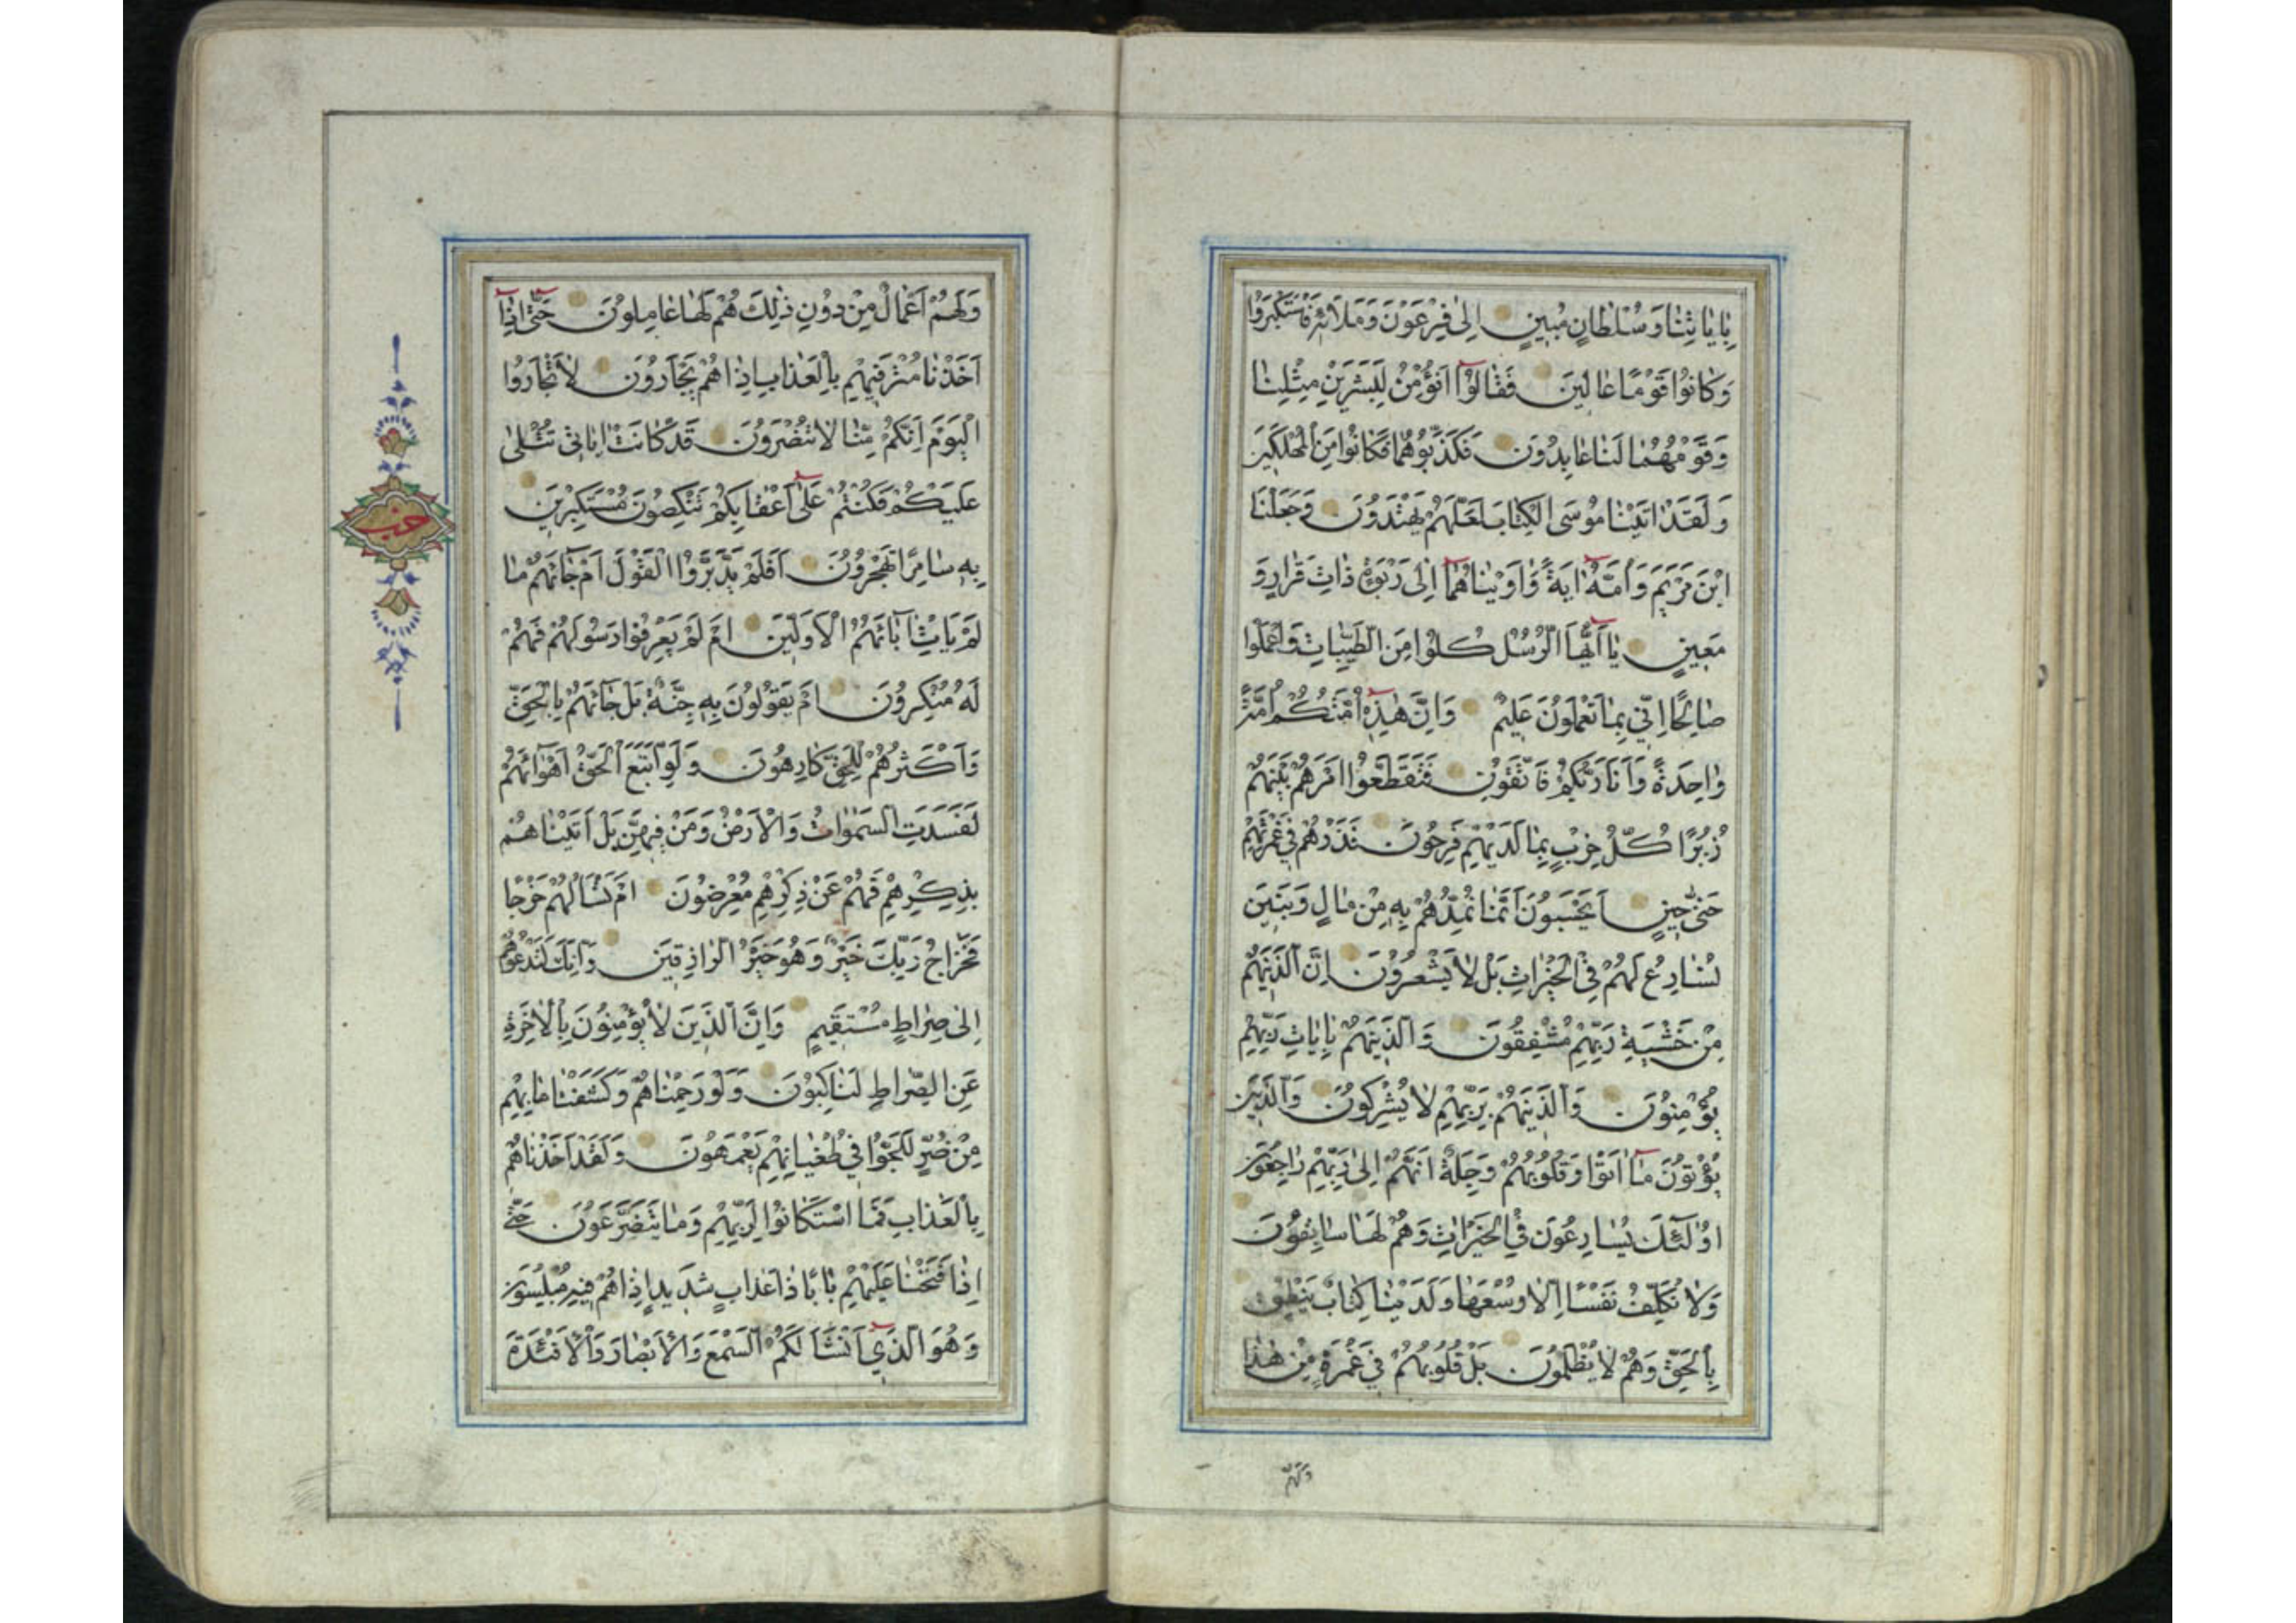 بِاٰيٰاتِنٰا وَ سُلْطٰانٍ مُبِينٍ اِلىٰ فِرْعَوْنَ وَمَلَائِهِ فَاسْتَكْبَرُوا
وَكٰانُوا قَوْمًا عٰالِينَ فَقٰالُوٓا اَنُؤْمِنُ لِبَشَرَيْنِ مِثْلِنٰا
وَقَوْمُهُمٰا لَنٰا عٰابِدُونَ فَكَذَّبُوهُمٰا فَكٰانُوا مِنَ الْمُهْلَكِينَ
وَلَقَدْ اٰتَيْنٰا مُوسَى الْكِتٰابَ لَعَلَّهُمْ يَهْتَدُونَ وَجَعَلْنَا
ابْنَ مَرْيَمَ وَاُمَّهُٓ اٰيَةً وَاٰوَيْنٰاهُمٰٓا اِلىٰ رَبْوَةٍ ذٰاتِ قَرٰارٍ وَ
مَعِينٍ يٰٓا اَيُّهَا الرُّسُلُ كُلُوا مِنَ الطَّيِّبٰاتِ وَاعْمَلُوا
صٰالِحًا اِنّي بِمٰا تَعْمَلُونَ عَلِيمٌ وَاِنَّ هٰذِهِٓ اُمَّتُكُمْ اُمَّةً
وٰاحِدَةً وَاَنَا رَبُّكُمْ فَاتَّقُونِ فَتَقَطَّعُوا اَمْرَهُمْ بَيْنَهُمْ
زُبُرًا كُلُّ حِزْبٍ بِمٰا لَدَيْهِمْ فَرِحُونَ فَذَرْهُمْ فِي غَمْرَتِهِمْ
حَتّىٰ حِينٍ اَيَحْسَبُونَ اَنَّمٰا نُمِدُّهُمْ بِهِ مِنْ مٰالٍ وَبَنِينَ
نُسٰارِعُ لَهُمْ فِي الْخَيْرٰاتِ بَلْ لٰا يَشْعُرُونَ اِنَّ الَّذِينَ هُمْ
مِنْ خَشْيَةِ رَبِّهِمْ مُشْفِقُونَ وَالَّذِينَ هُمْ بِاٰيٰاتِ رَبِّهِمْ
يُؤْمِنُونَ وَالَّذِينَ هُمْ بِرَبِّهِمْ لٰا يُشْرِكُونَ وَالَّذِينَ
يُؤْتُونَ مٰٓا اٰتَوْا وَقُلُوبُهُمْ وَجِلَةٌ اَنَّهُمْ اِلىٰ رَبِّهِمْ رٰاجِعُونَ
اُولٰٓئِكَ يُسٰارِعُونَ فِي الْخَيْرٰاتِ وَهُمْ لَهٰا سٰابِقُونَ
وَلٰا نُكَلِّفُ نَفْسًا اِلّٰا وُسْعَهٰا وَلَدَيْنٰا كِتٰابٌ يَنْطِقُ
بِالْحَقِّ وَهُمْ لٰا يُظْلَمُونَ بَلْ قُلُوبُهُمْ فِي غَمْرَةٍ مِنْ هٰذٰا
وَلَهُمْ
وَلَهُمْ اَعْمٰالٌ مِنْ دُونِ ذٰلِكَ هُمْ لَهٰا عٰامِلُونَ حَتّٰٓى اِذٰٓا
اَخَذْنٰا مُتْرَفِيهِمْ بِالْعَذٰابِ اِذٰا هُمْ يَجْاَرُونَ لٰا تَجْاَرُوا
الْيَوْمَ اِنَّكُمْ مِنّٰا لٰا تُنْصَرُونَ قَدْ كٰانَتْ اٰيٰاتِي تُتْلىٰ
عَلَيْكُمْ فَكُنْتُمْ عَلىٰٓ اَعْقٰابِكُمْ تَنْكِصُونَ مُسْتَكْبِرِينَ
بِهِ سٰامِرًا تَهْجُرُونَ اَفَلَمْ يَدَّبَّرُوا الْقَوْلَ اَمْ جٰٓائَهُمْ مٰا
لَمْ يَاْتِ اٰبٰٓائَهُمُ الْاَوَّلِينَ اَمْ لَمْ يَعْرِفُوا رَسُولَهُمْ فَهُمْ
لَهُ مُنْكِرُونَ اَمْ يَقُولُونَ بِهِ جِنَّةٌ بَلْ جٰٓائَهُمْ بِالْحَقِّ
وَاَكْثَرُهُمْ لِلْحَقِّ كٰارِهُونَ وَلَوِ اتَّبَعَ الْحَقُّ اَهْوٰٓائَهُمْ
لَفَسَدَتِ السَّمٰوٰاتُ وَالْاَرْضُ وَمَنْ فِيهِنَّ بَلْ اَتَيْنٰاهُمْ
بِذِكْرِهِمْ فَهُمْ عَنْ ذِكْرِهِمْ مُعْرِضُونَ اَمْ تَسْاَلُهُمْ خَرْجًا
فَخَرٰاجُ رَبِّكَ خَيْرٌ وَهُوَ خَيْرُ الرّٰازِقِينَ وَاِنَّكَ لَتَدْعُوهُمْ
اِلىٰ صِرٰاطٍ مُسْتَقِيمٍ وَاِنَّ الَّذِينَ لٰا يُؤْمِنُونَ بِالْاٰخِرَةِ
عَنِ الصِّرٰاطِ لَنٰاكِبُونَ وَلَوْ رَحِمْنٰاهُمْ وَكَشَفْنٰا مٰا بِهِمْ
مِنْ ضُرٍّ لَلَجُّوا فِي طُغْيٰانِهِمْ يَعْمَهُونَ وَلَقَدْ اَخَذْنٰاهُمْ
بِالْعَذٰابِ فَمَا اسْتَكٰانُوا لِرَبِّهِمْ وَمٰا يَتَضَرَّعُونَ حَتّٰى
اِذٰا فَتَحْنٰا عَلَيْهِمْ بٰابًا ذٰا عَذٰابٍ شَدِيدٍ اِذٰا هُمْ فِيهِ مُبْلِسُونَ
وَهُوَ الَّذِي اَنْشَاَ لَكُمُ السَّمْعَ وَالْاَبْصٰارَ وَالْاَفْئِدَةَ
حزب